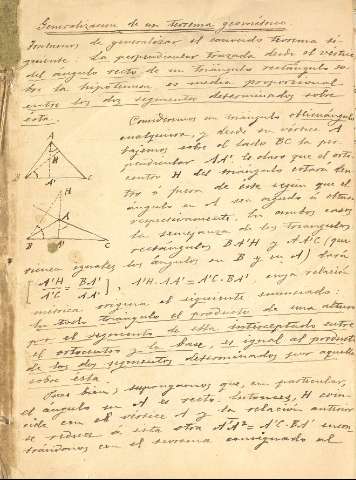 Generalización de un teorema geométrico.
Tratemos de generalizar el conocido teorema si-
guiente: La perpendicular trazada desde el vértice
del ángulo recto de un triángulo rectángulo so-
bre la hipotenusa es media proporcional
entre los dos segmentos determinados sobre
ésta.
Consideremos un triángulo oblicuángulo
cualquiera, y desde su vértice A
bajemos sobre el lado BC la per-
pendicular AA'. Es claro que el orto-
centro H del triángulo estará den-
tro ó fuera de éste según que el
ángulo en A sea agudo ú obtuso
respectivamente. En ambos casos
la semejanza de los triángulos
rectángulos BA'H y AA'C (que
tienen iguales los ángulos en B y en A) dará
[A'H/A'C = BA'/AA'], A'H·AA' = A'C·BA' cuya relación
métrica origina el siguiente enunciado:
En todo triángulo el producto de una altura
por el segmento de ésta interceptado entre
el ortocentro y la base, es igual al producto
de los dos segmentos determinados por aquella
sobre ésta.
Pues bien, supongamos que, en particular,
el ángulo en A es recto. Entonces, H coin-
cide con el vértice A y la relación anterior
se reduce á esta otra A'A² = A'C·BA' encon-
trándonos con el teorema consignado al
A
H
B
A'
C
H
A
B
A'
C